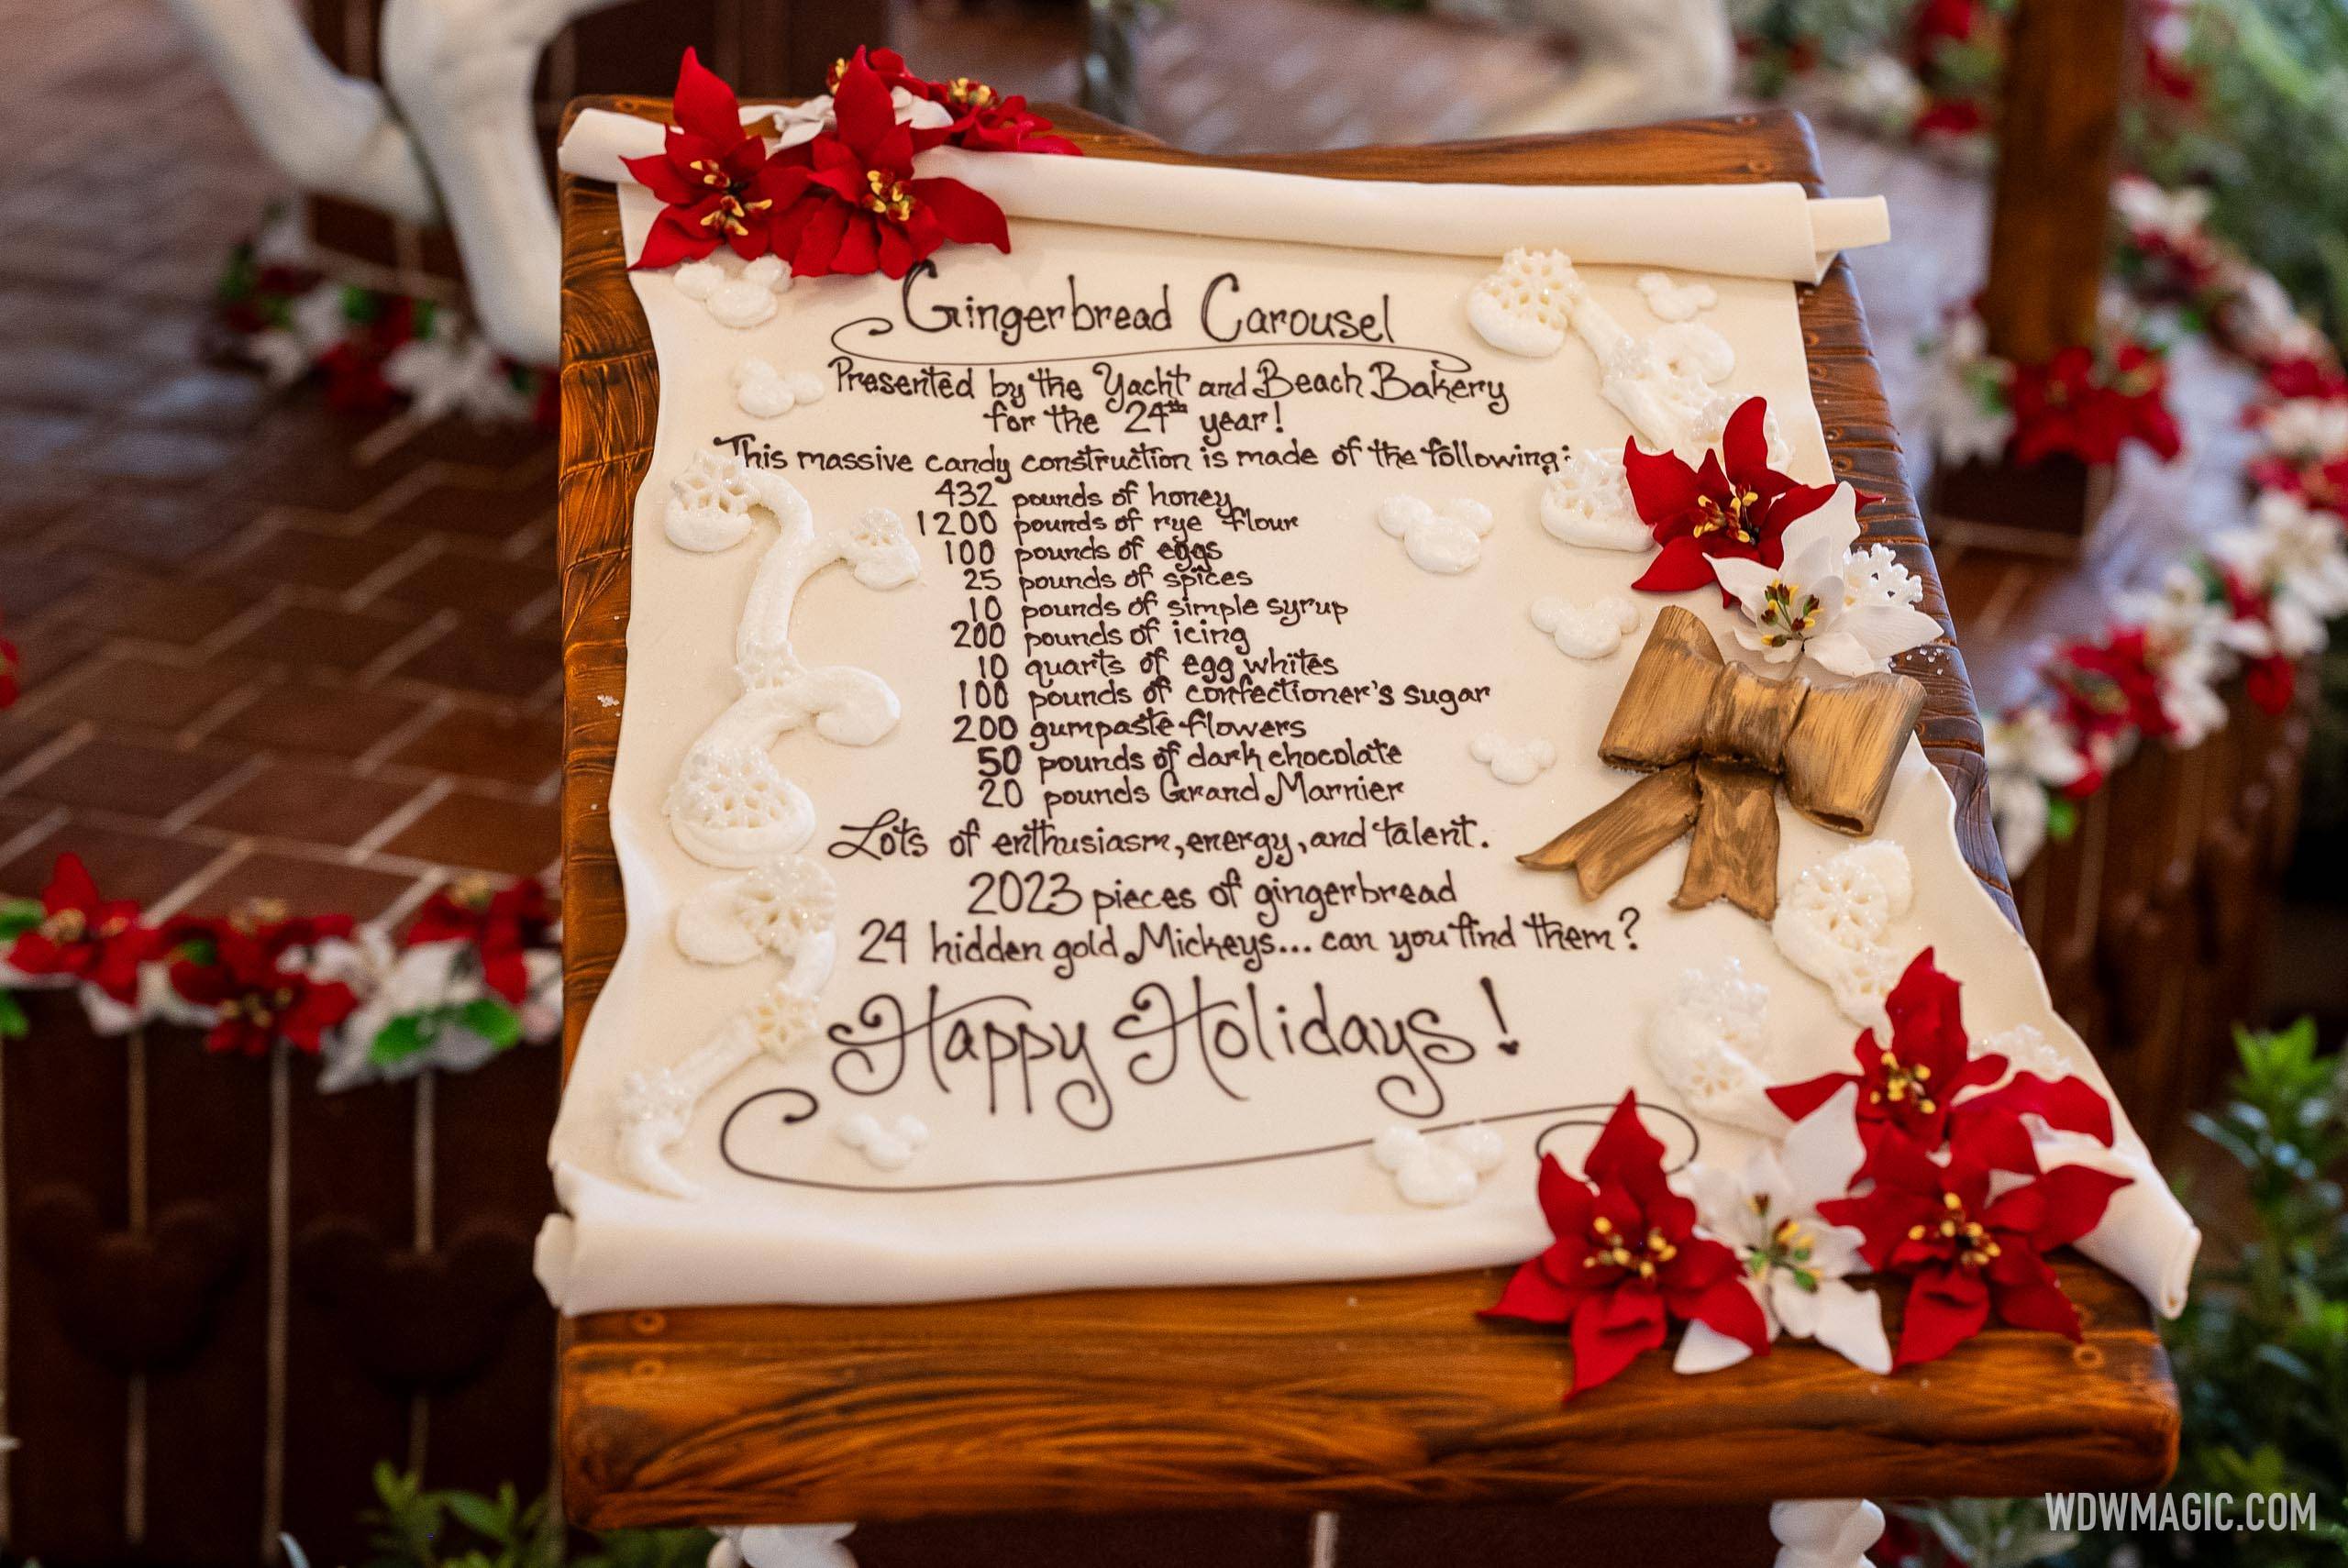 Gingerbread Carousel
Presented by the Yacht and Beach Bakery
for the 24th year!
This massive candy construction is made of the following:
432 pounds of honey
1200 pounds of rye flour
100 pounds of eggs
25 pounds of spices
10 pounds of simple syrup
200 pounds of icing
10 quarts of egg whites
100 pounds of confectioner's sugar
200 gumpaste flowers
50 pounds of dark chocolate
20 pounds Grand Marnier
Lots of enthusiasm, energy, and talent.
2023 pieces of gingerbread
24 hidden gold Mickeys... can you find them?
Happy Holidays!
WDWMAGIC.COM